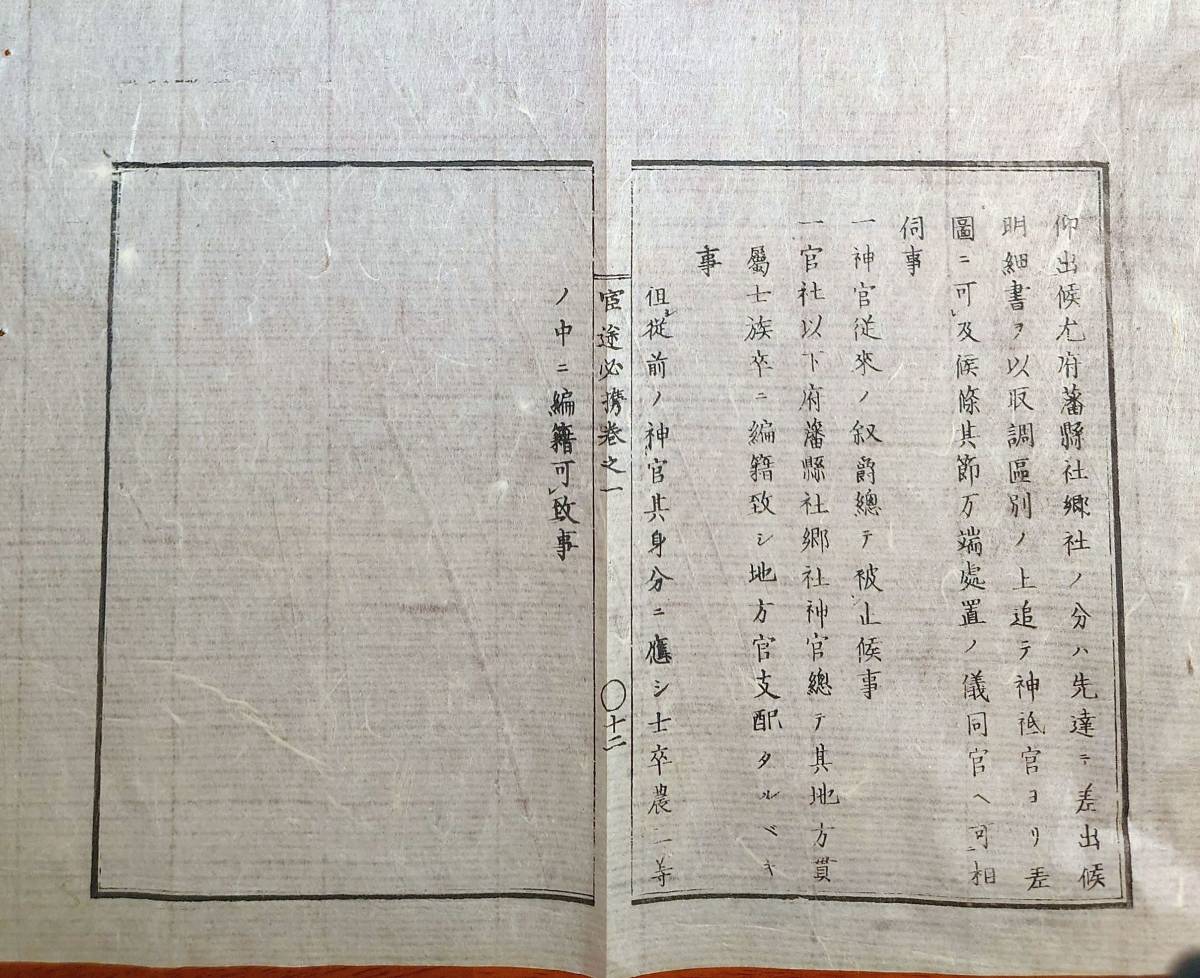 仰出候尤府藩縣社郷社ノ分ハ先達テ差出候
明細書ヲ以取調區別ノ上追テ神祇官ヨリ差
圖ニ可レ及候條其節万端處置ノ儀同官ヘ可レ相
伺事
一神官従來ノ叙爵總テ被レ止候事
一官社以下府藩縣社郷社神官總テ其地方貫
屬士族卒ニ編籍致シ地方官支配タルベキ
事
但従前ノ神官其身分ニ應シ士卒農二等
宦途必携巻之一 〇十二
ノ中ニ編籍可レ致事